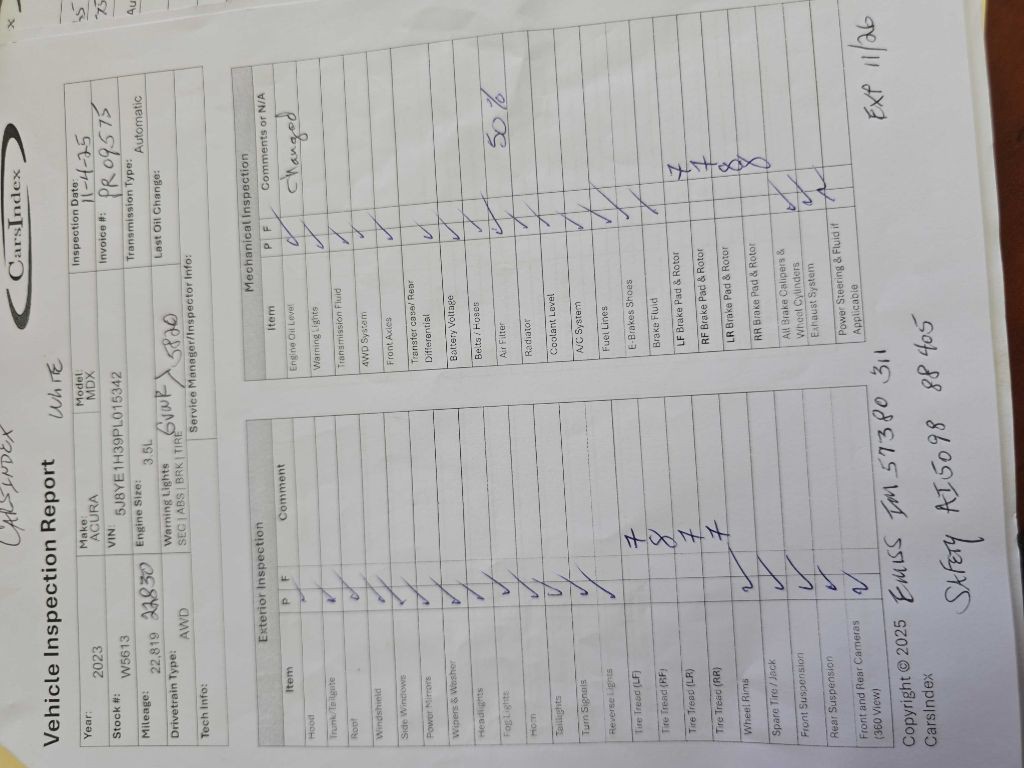 CARSINDEX
CarsIndex
Vehicle Inspection Report
WHITE
Year: 2023 Make: ACURA Model: MDX Inspection Date: 11-4-25
Stock #: W5613 VIN: 5J8YE1H39PL015342 Invoice #: PR09575
Mileage: 22,819 22830 Engine Size: 3.5L Transmission Type: Automatic
Drivetrain Type: AWD Warning Lights SEC | ABS | BRK | TIRE GVWR 5820 Last Oil Change:
Tech Info: Service Manager/Inspector Info:
Exterior Inspection
Item P F Comment
Hood ✓
Trunk/Tailgate ✓
Roof ✓
Windshield ✓
Side Windows ✓
Power Mirrors ✓
Wipers & Washer ✓
Headlights ✓
Fog Lights ✓
Horn ✓
Taillights ✓
Turn Signals ✓
Reverse Lights ✓
Tire Tread (LF) 7
Tire Tread (RF) 8
Tire Tread (LR) 7
Tire Tread (RR) 7
Wheel Rims ✓
Spare Tire / Jack ✓
Front Suspension ✓
Rear Suspension ✓
Front and Rear Cameras ✓
(360 View)
Mechanical Inspection
Item P F Comments or N/A
Engine Oil Level ✓ changed
Warning Lights ✓
Transmission Fluid ✓
4WD System ✓
Front Axles ✓
Transfer case/ Rear
Differential ✓
Battery Voltage ✓
Belts / Hoses ✓
Air Filter ✓ 50%
Radiator ✓
Coolant Level ✓
A/C System ✓
Fuel Lines ✓
E-Brakes Shoes ✓
Brake Fluid ✓
LF Brake Pad & Rotor 7
RF Brake Pad & Rotor 7
LR Brake Pad & Rotor 8
RR Brake Pad & Rotor 8
All Brake Calipers &
Wheel Cylinders ✓
Exhaust System ✓
Power Steering & Fluid if
Applicable
Copyright © 2025
CarsIndex
EMISS IM 57380 311
SAFETY AI5098 88405
EXP 11/26